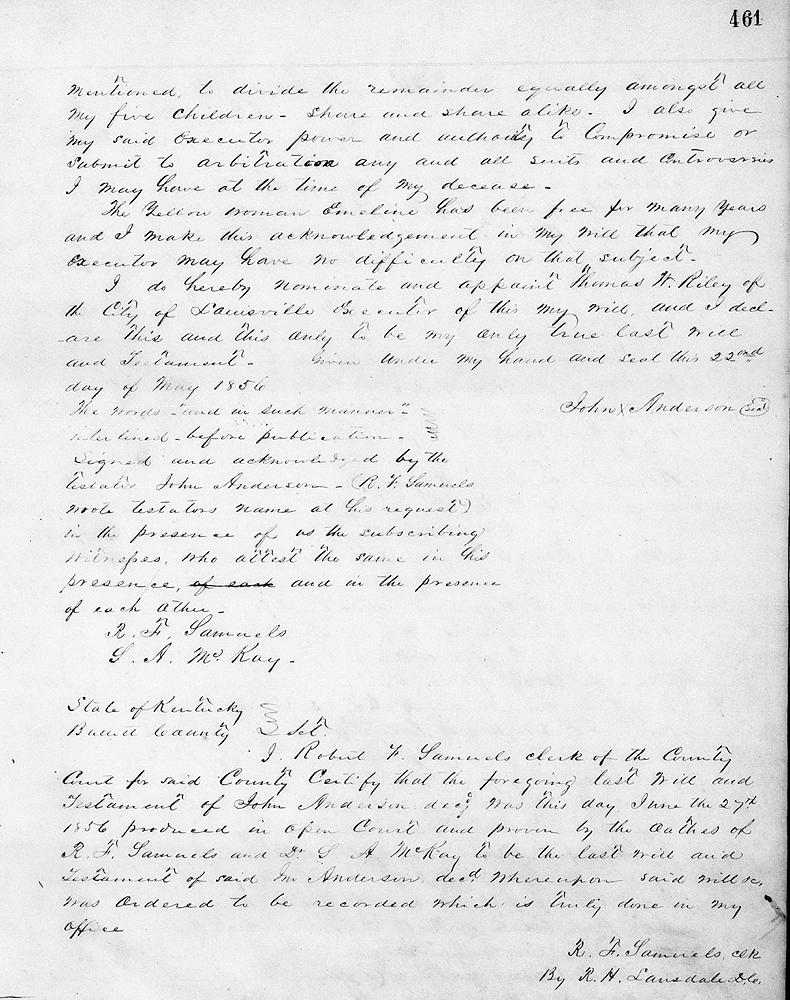 461
mentioned, to divide the remainder equally amongst all
my five children - share and share alike. I also give
my said Executor power and authority to Compromise or
submit to arbitration any and all suits and controversies
I may have at the time of my decease -
The Yellow woman Emeline has been free for many years
and I make this acknowledgement in my will that my
Executor may have no difficulty on that subject.
I do hereby nominate and appoint Thomas W. Riley of
the City of Louisville Executor of this my will, and I decl-
-are this and this only to be my only true last will
and Testament - Given under my hand and seal this 22nd
day of May 1856
John X Anderson (Seal)
The words "and in such manner"
interlined - before publication -
Signed and acknowledged by the
testator John Anderson - (R. F. Samuels
wrote testators name at his request)
in the presence of us the subscribing
witnesses, who attest the same in his
presence, of each and in the presence
of each other -
R. F. Samuels
S. A. McKay -
State of Kentucky
Bullitt County } Sct.
I. Robert F. Samuels clerk of the County
Court for said County Certify that the foregoing last will and
Testament of John Anderson decd was this day June the 27th
1856 produced in open Court and proven by the oathes of
R. F. Samuels and Dr. S. A. McKay to be the last will and
Testament of said Jno Anderson decd Whereupon said will &c.
was ordered to be recorded which is truly done in my
office
R. F. Samuels, clk
By R. H. Lansdale D.C.